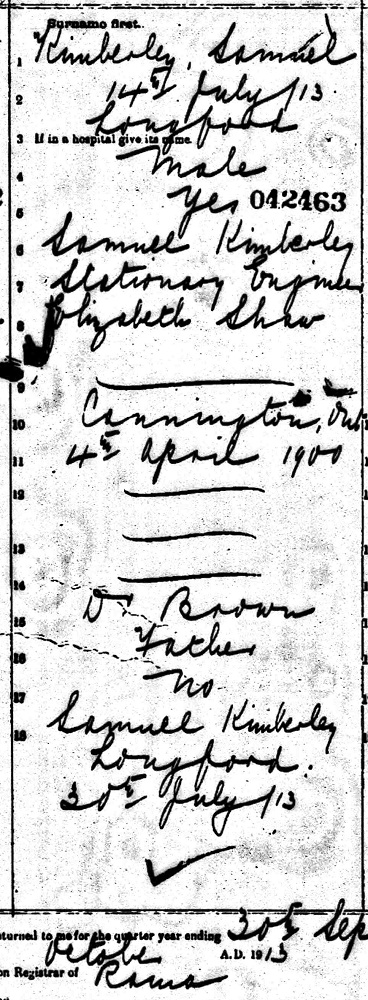 Surname first.
1 Kimberley, Samuel
2 14th July/13
Longford
3 If in a hospital give its name.
4 Male
5 Yes 042463
6 Samuel Kimberley
7 Stationary Engineer
8 Elizabeth Shaw
9
10 Cannington, Ont.
11 4th April 1900
12
13
14
15 Dr Brown
Father
16
17 No
18 Samuel Kimberley
Longford.
30th July/13
eturned to me for the quarter year ending 30th Sep
Octobe A.D. 1913
on Registrar of Rama